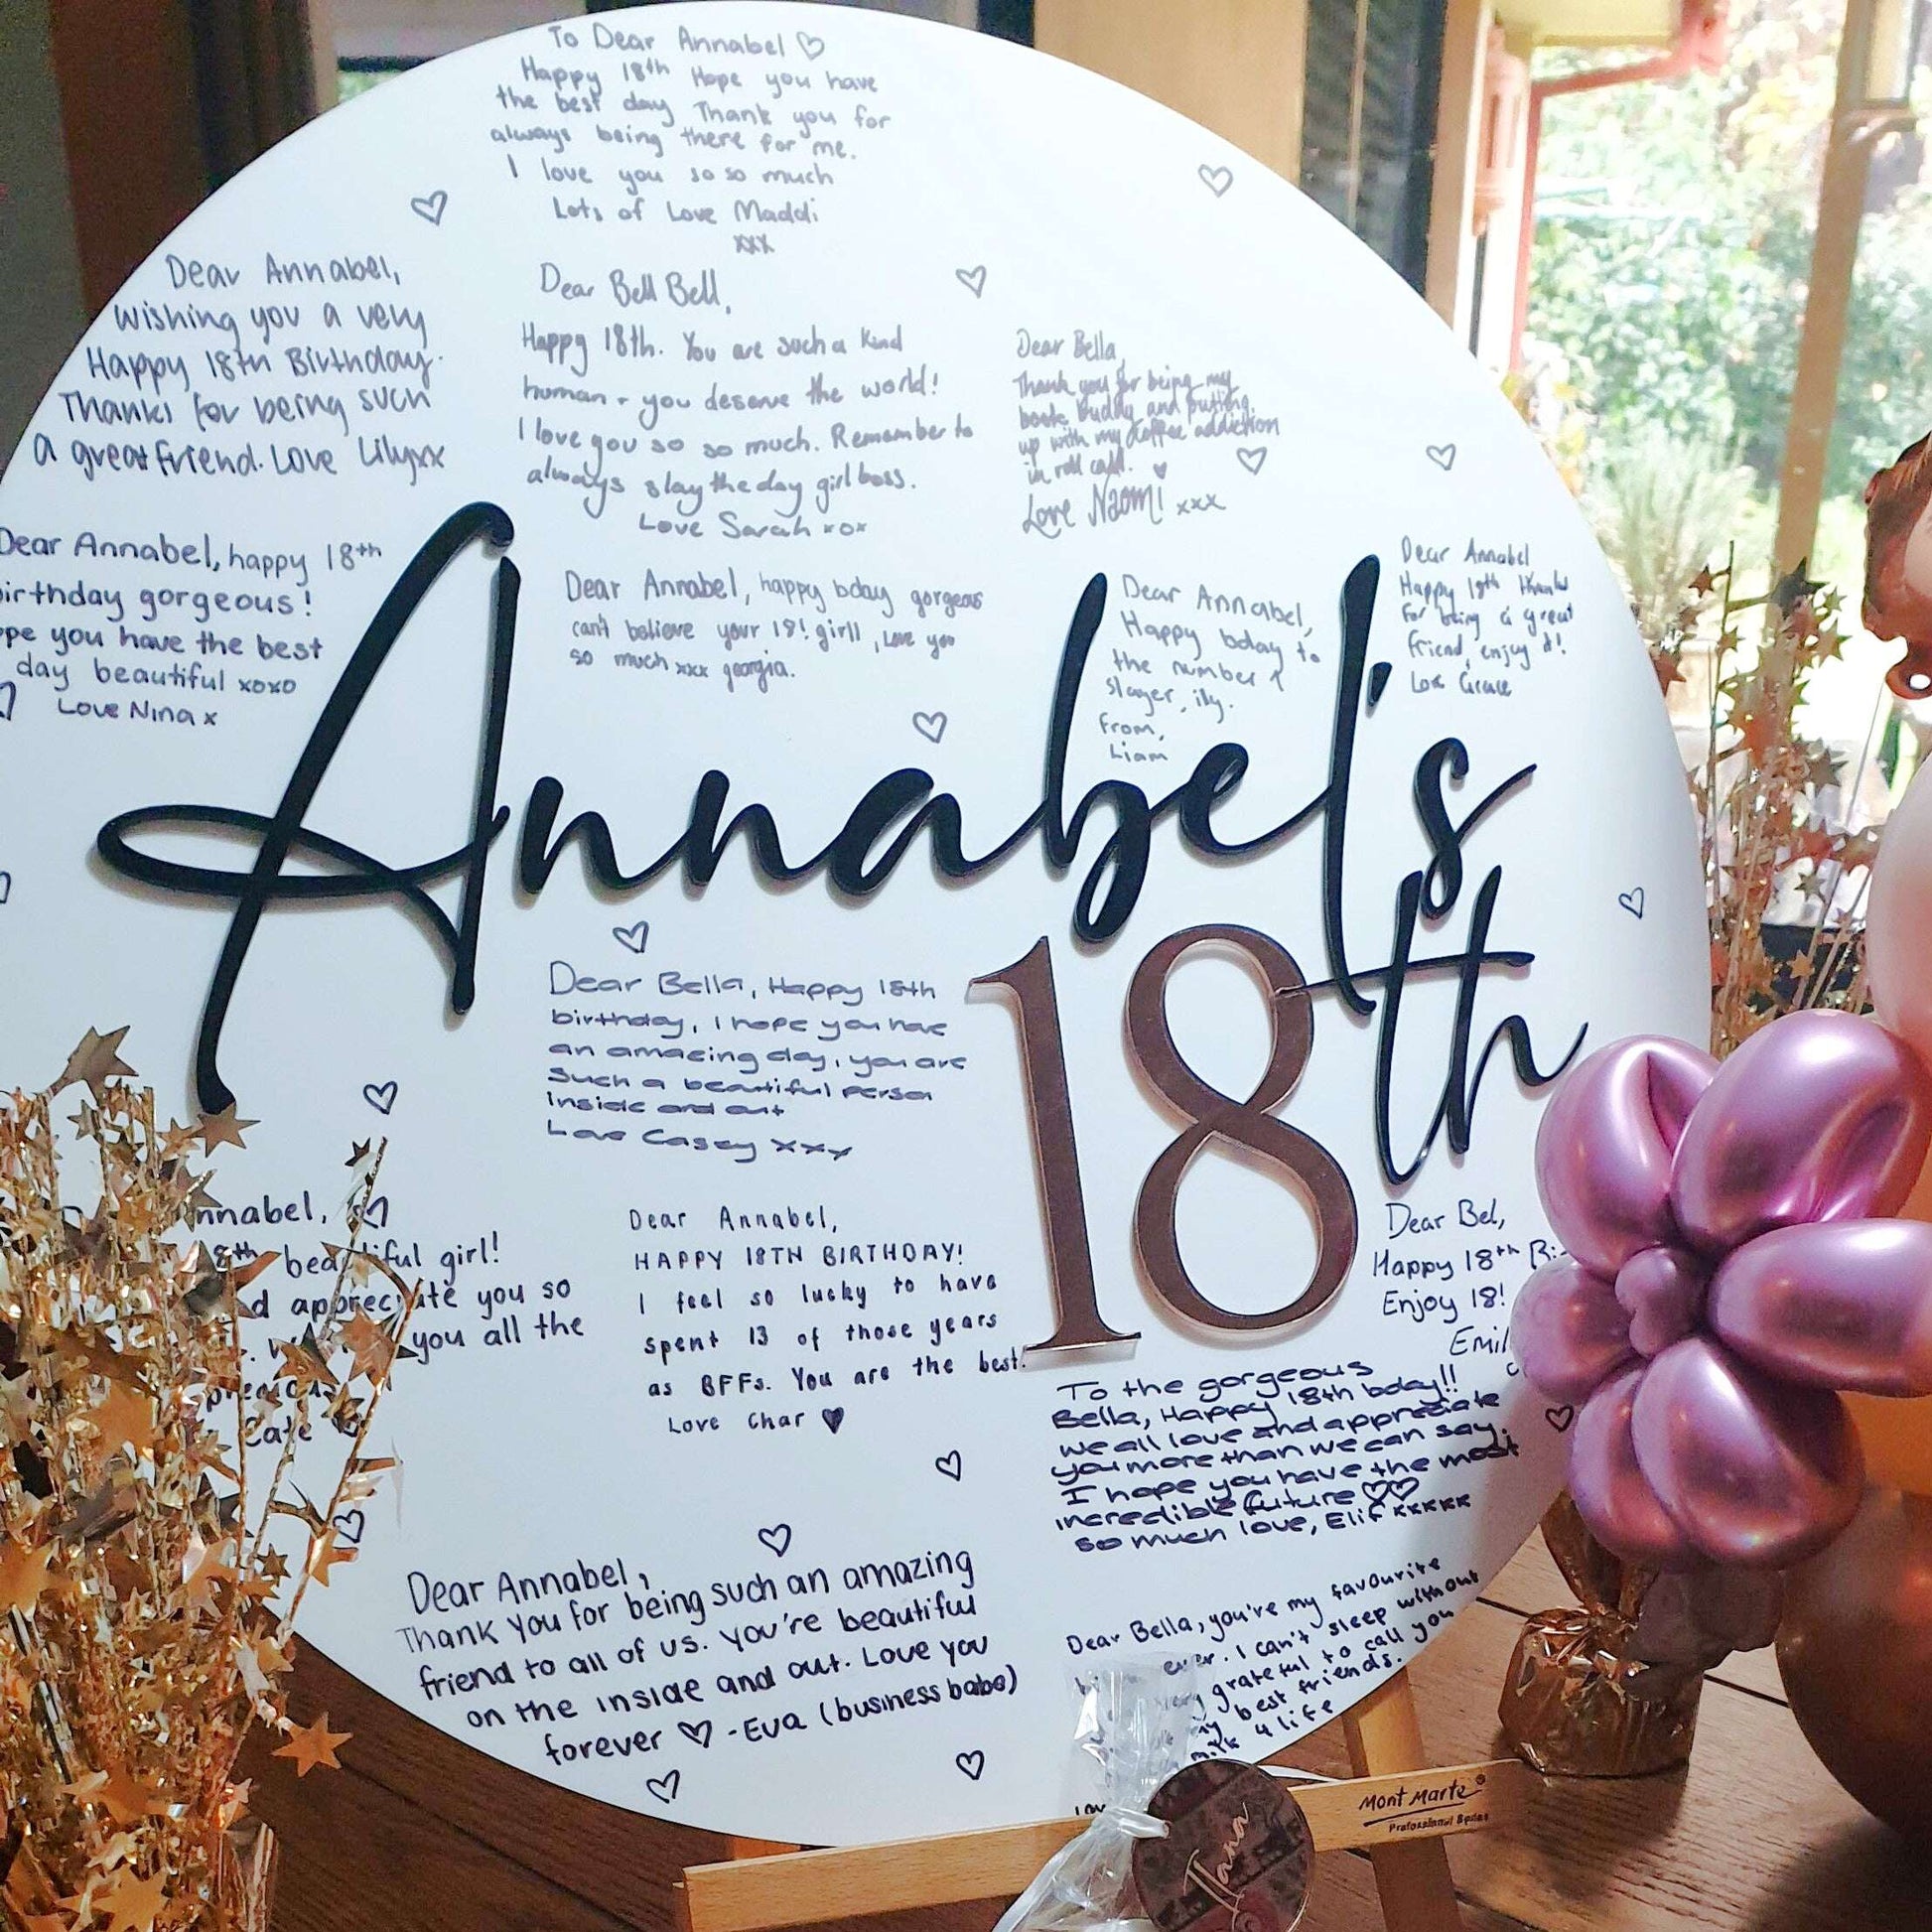 To Dear Annabel ♡
Happy 18th Hope you have
the best day Thank you for
always being there for me.
I love you so so much
Lots of Love Maddi
xxx
Dear Annabel,
wishing you a very
Happy 18th Birthday.
Thanks for being such
a great friend. Love Lilyxx
Dear Bell Bell,
Happy 18th. You are such a kind
human + you deserve the world!
I love you so so much. Remember to
always slay the day girl boss.
Love Sarah xox
Dear Bella,
Thank you for being my
book buddy and putting
up with my coffee addiction
in roll call.
Love Naomi xxx
Dear Annabel, happy 18th
birthday gorgeous!
pe you have the best
day beautiful xoxo
Love Nina x
Dear Annabel, happy bday gorgeous
can't believe your 18! girll, love you
so much xxx georgia.
Dear Annabel,
Happy bday to
the number 1
slayer, ily.
From,
Liam
Dear Annabel
Happy 18th thanks
for being a great
friend, enjoy it!
Love Grace
Annabel's
18th
Dear Bella, Happy 18th
birthday, I hope you have
an amazing day, you are
such a beautiful person
inside and out
Love Casey xxx
nnabel, ♡
8th beautiful girl!
d appreciate you so
you all the
Cate
Dear Annabel,
HAPPY 18TH BIRTHDAY!
I feel so lucky to have
spent 13 of those years
as BFFs. You are the best.
Love Char ♥
Dear Bel,
Happy 18th Bi
Enjoy 18!
Emil
To the gorgeous
Bella, Happy 18th bday!!
we all love and appreciate
you more than we can say.
I hope you have the most
incredible future ♡♡
so much love, Elif xxxxx
Dear Annabel,
Thank you for being such an amazing
friend to all of us. You're beautiful
on the inside and out. Love you
forever ♡ -Eva (business babe)
Dear Bella, you're my favourite
ever. I can't sleep without
grateful to call you
my best friends.
milk 4 life
Mont Marte®
Professional Series
Ilana